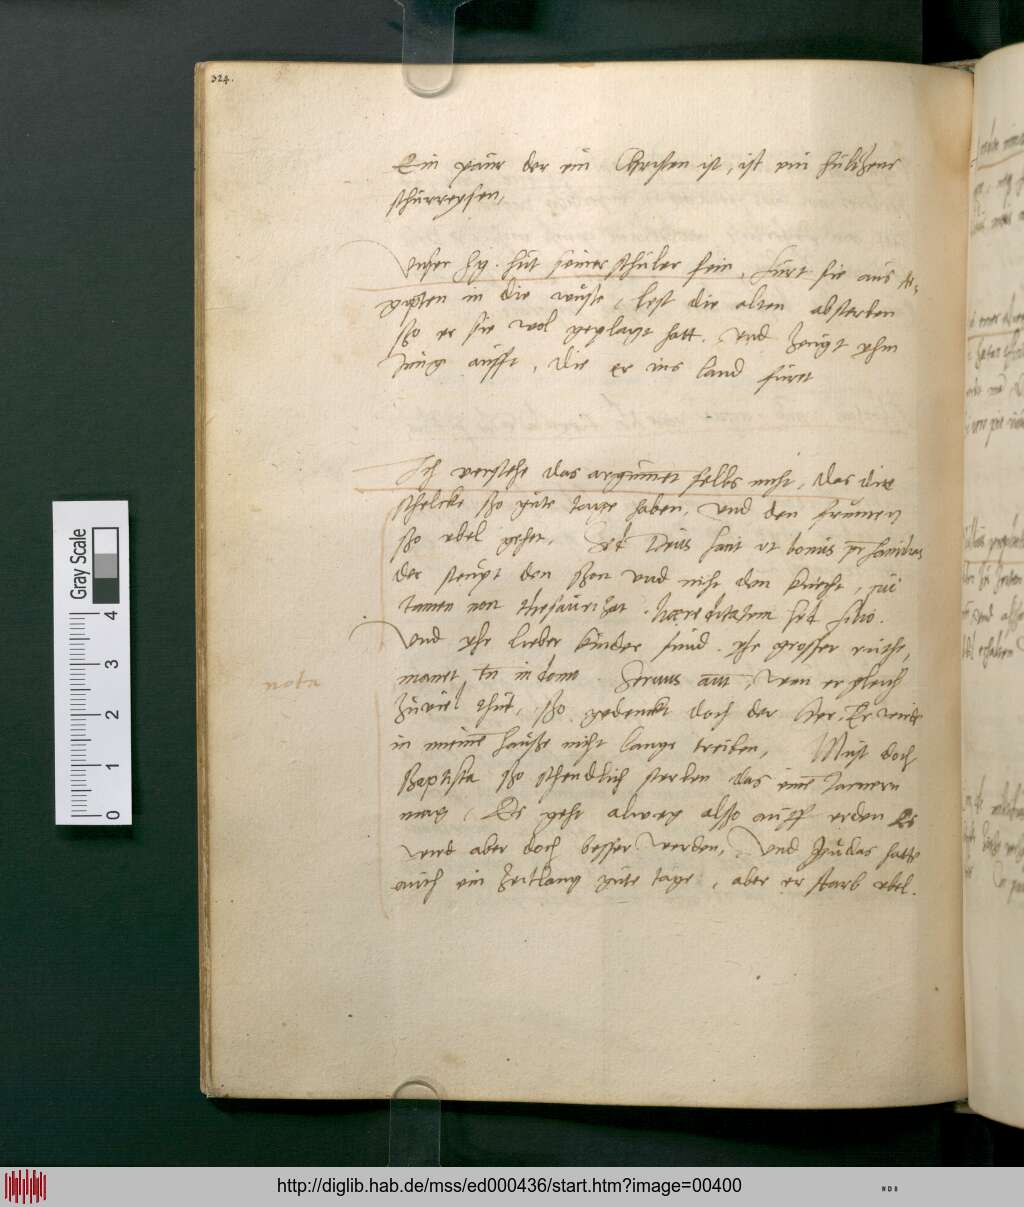 324.
Ein paur der ein Christen ist, ist ein hültzene
schurreysen,
Unser hg. hut seiner schuler fein, furt sie aus Ae-
gypten in die wuste, lest die alten absterben
sso er sie wol geplagt hatt. Und zeugt yhm
Jung auff, die er ins land furet
Ich verstehe das argument selbs nicht, das die
schelcke sso gute tage haben, und den frumen
sso ubel gehet,
der steupt den sson und nicht den knecht, qui
tamen non thesaurisat haereditatem sed filio.
Und yhr lieber kinder sind yhr grosser ruthe,
nota
manet tn in domo Servus aut, wen er gleich
zuviel thut, sso gedenckt doch der her, Er wirdt
in meine hausse nicht lange treiben, Must doch
Baptista sso schendlich sterben das eine Jamern
mag, Es geht alweg also auff erden Es
wird aber doch besser werden, Und Judas hatte
auch ein zeitlang gute tage, aber er starb ubel.
Gray Scale
0 1 2 3 4
http://diglib.hab.de/mss/ed000436/start.htm?image=00400